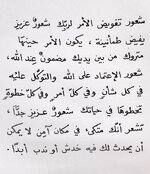 شعور تفويض الأمر لربّك شعورٌ عزيز
يفيض طمأنينة، يكون الأمر حينها
متروك من بين يديك مضمونٌ عند الله،
شعور الإعتماد على الله والتوكُّل عليه
في كل شأنٍ وفي كلّ أمرٍ وفي كلّ خطوةٍ
تخطوها في حياتك شعورٌ عزيز جدًّا،
تشعر أنّك متّكىء في مكان آمن لا يمكن
أن يحدث لك فيه خدش أو ندب أبداً.